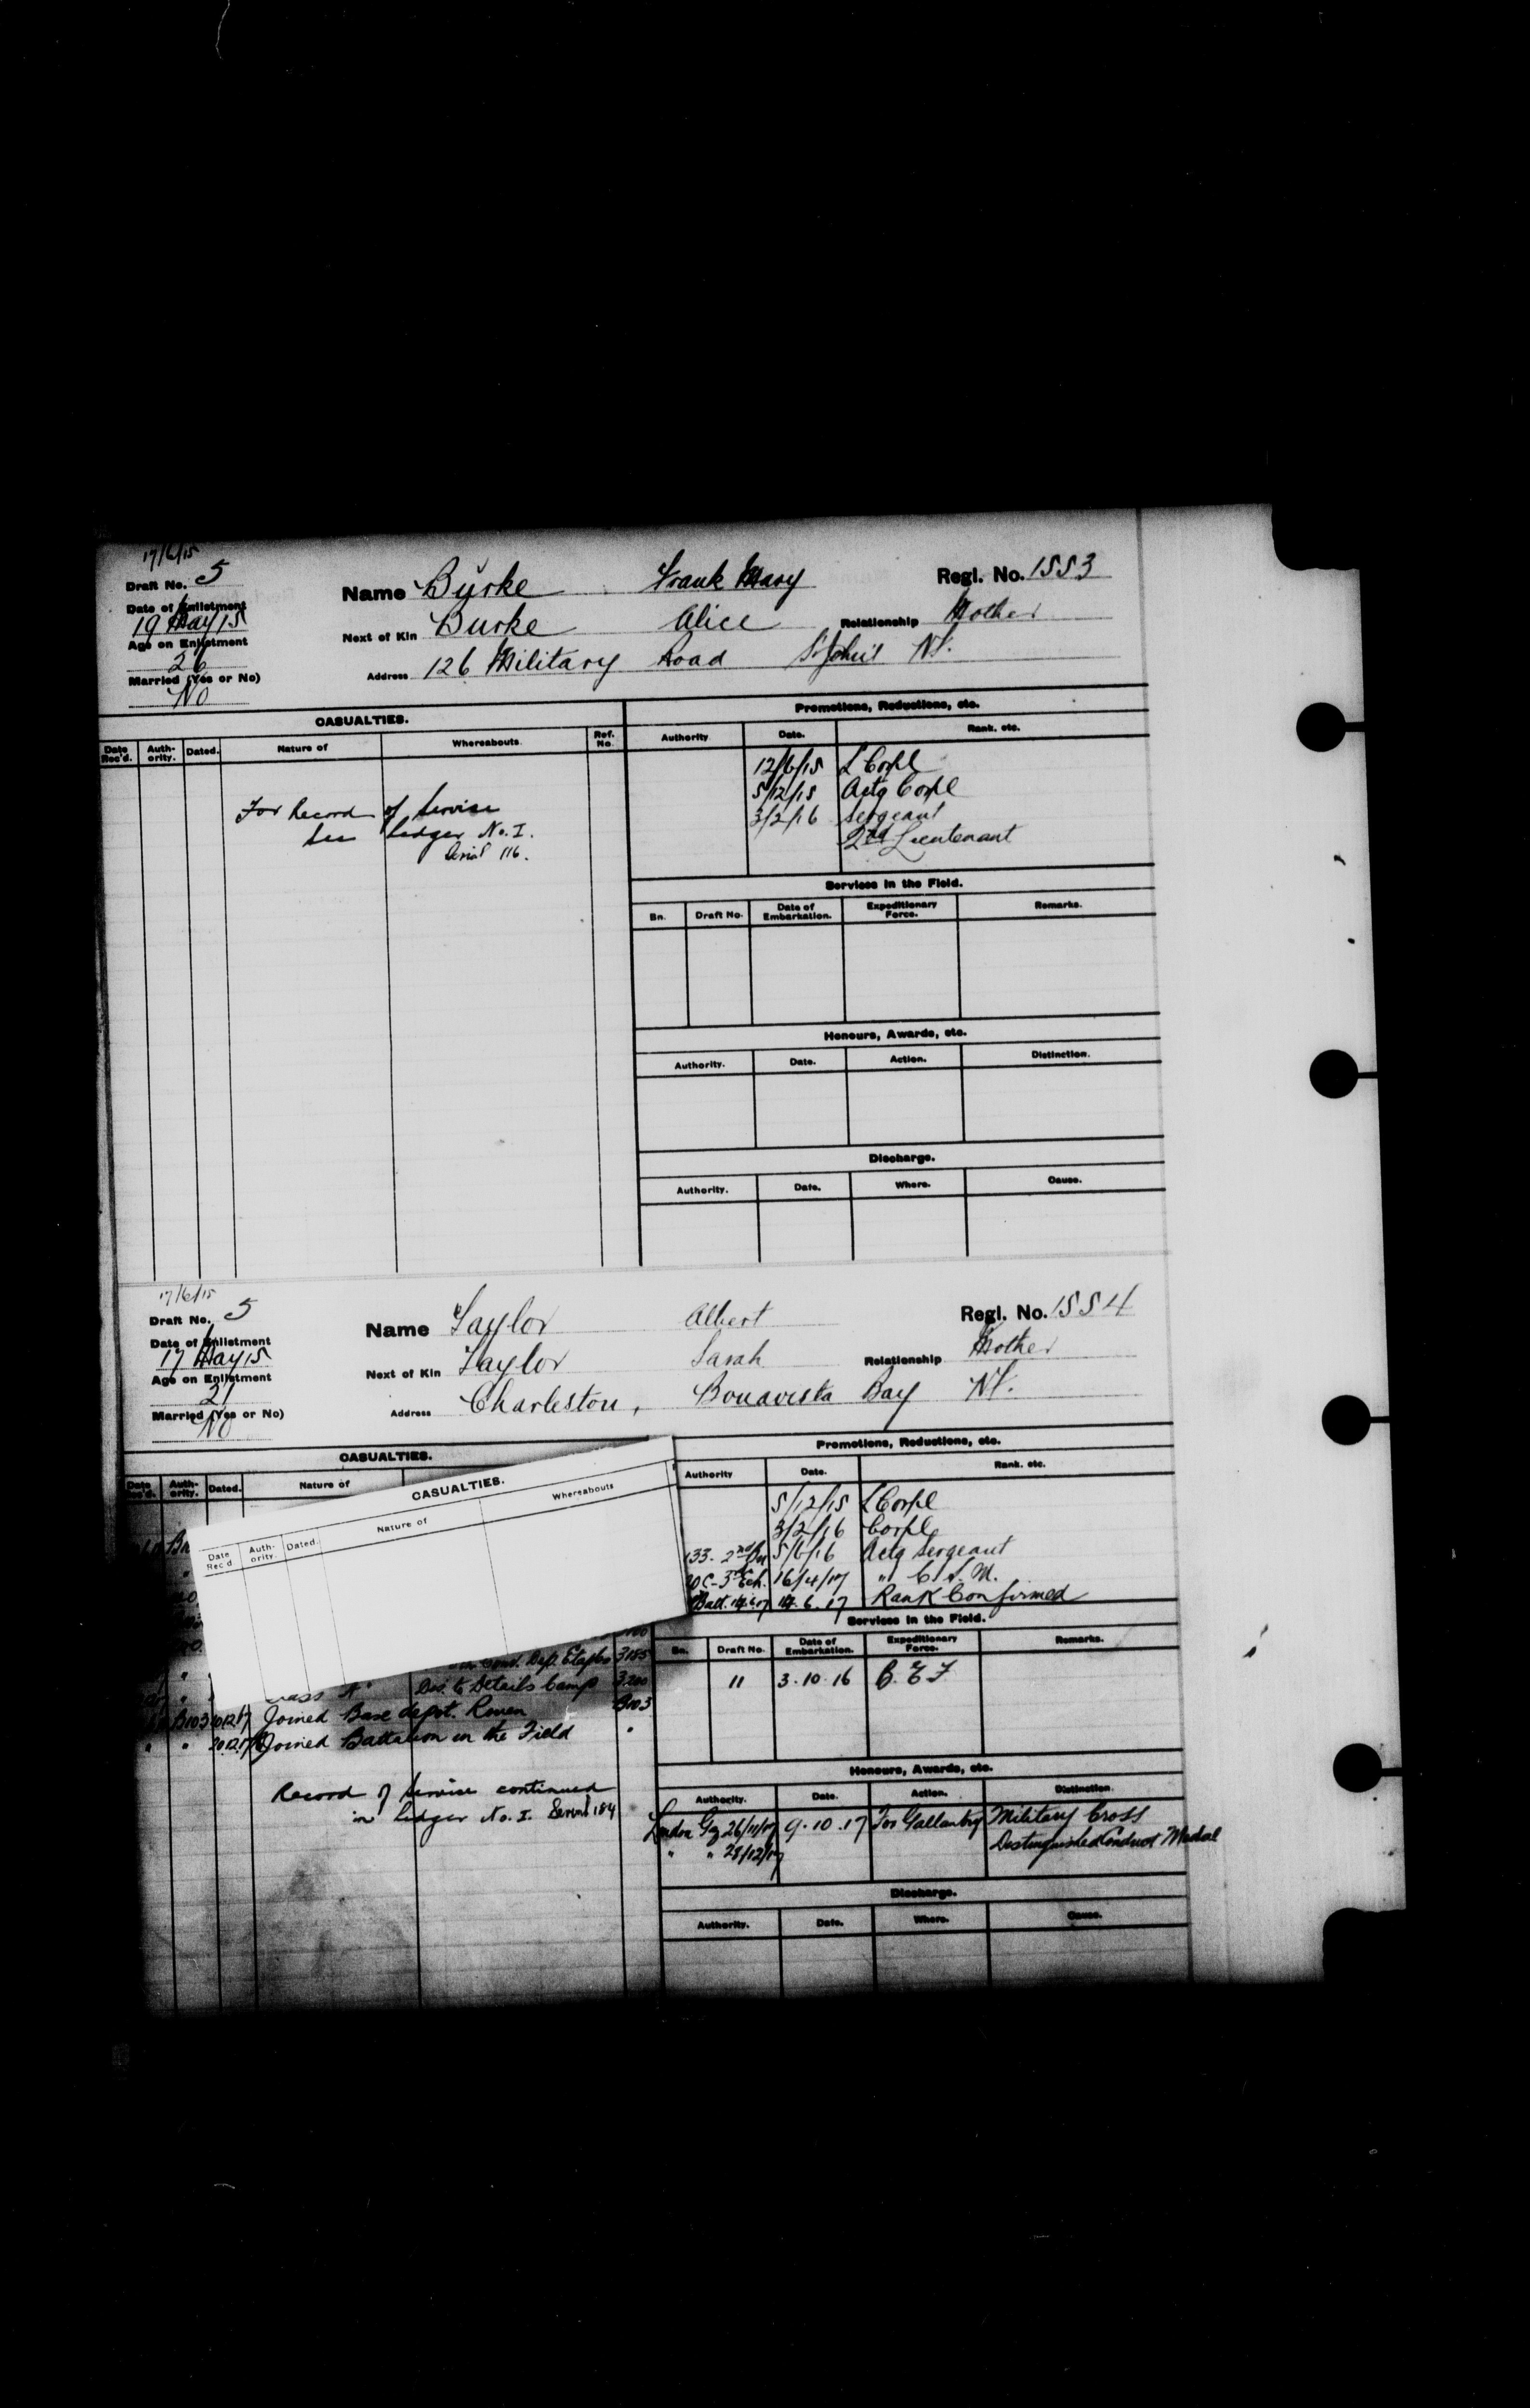 17/6/15
Draft No. 5
Name Burke Frank Mary Regl. No. 1553
Date of Enlistment
19 May 15
Next of Kin Burke Alice Relationship Mother
Age on Enlistment
26
Address 126 Military Road St John's Nf.
Married (Yes or No)
No
CASUALTIES. Promotions, Reductions, etc.
Date Rec'd. Auth- ority. Dated. Nature of Whereabouts Ref. No. Authority Date. Rank, etc.
12/6/15 L Corpl
5/12/15 Actg Corpl
For Record of Service 3/2/16 Sergeant
See Ledger No. I. 2nd Lieutenant
Serial 116.
Services in the Field.
Bn. Draft No. Date of Embarkation. Expeditionary Force. Remarks.
Honours, Awards, etc.
Authority. Date. Action. Distinction.
Discharge.
Authority. Date. Where. Cause.
17/6/15
Draft No. 5
Name Taylor Albert Regl. No. 1554
Date of Enlistment
17 May 15
Next of Kin Taylor Sarah Relationship Mother
Age on Enlistment
21
Address Charleston, Bonavista Bay Nf.
Married (Yes or No)
No
CASUALTIES. Promotions, Reductions, etc.
Date Rec'd. Auth- ority. Dated. Nature of Authority Date. Rank, etc.
CASUALTIES.
Date Rec'd. Auth- ority. Dated. Nature of Whereabouts
5/12/15 L Corpl
3/2/16 Corpl
133. 2nd Bn 5/6/16 Actg Sergeant
OC-3rd Ech. 16/4/17 " C.S.M.
Batt. 14.6.17 14.6.17 Rank Confirmed
Services in the Field.
Bn. Draft No. Date of Embarkation. Expeditionary Force. Remarks.
11 3.10.16 B.E.F
Conv. Dep. Etaples 3185
"A" Dis. to Details Camp 3200
B103 Joined Base depot. Rouen B103
" " 20.12.17 Joined Battalion in the Field "
Record of Service continued
in Ledger No. I. Serial 184
Honours, Awards, etc.
Authority. Date. Action. Distinction.
London Gaz 26/11/17 9.10.17 For Gallantry Military Cross
" " 28/12/17 Distinguished Conduct Medal
Discharge.
Authority. Date. Where. Cause.